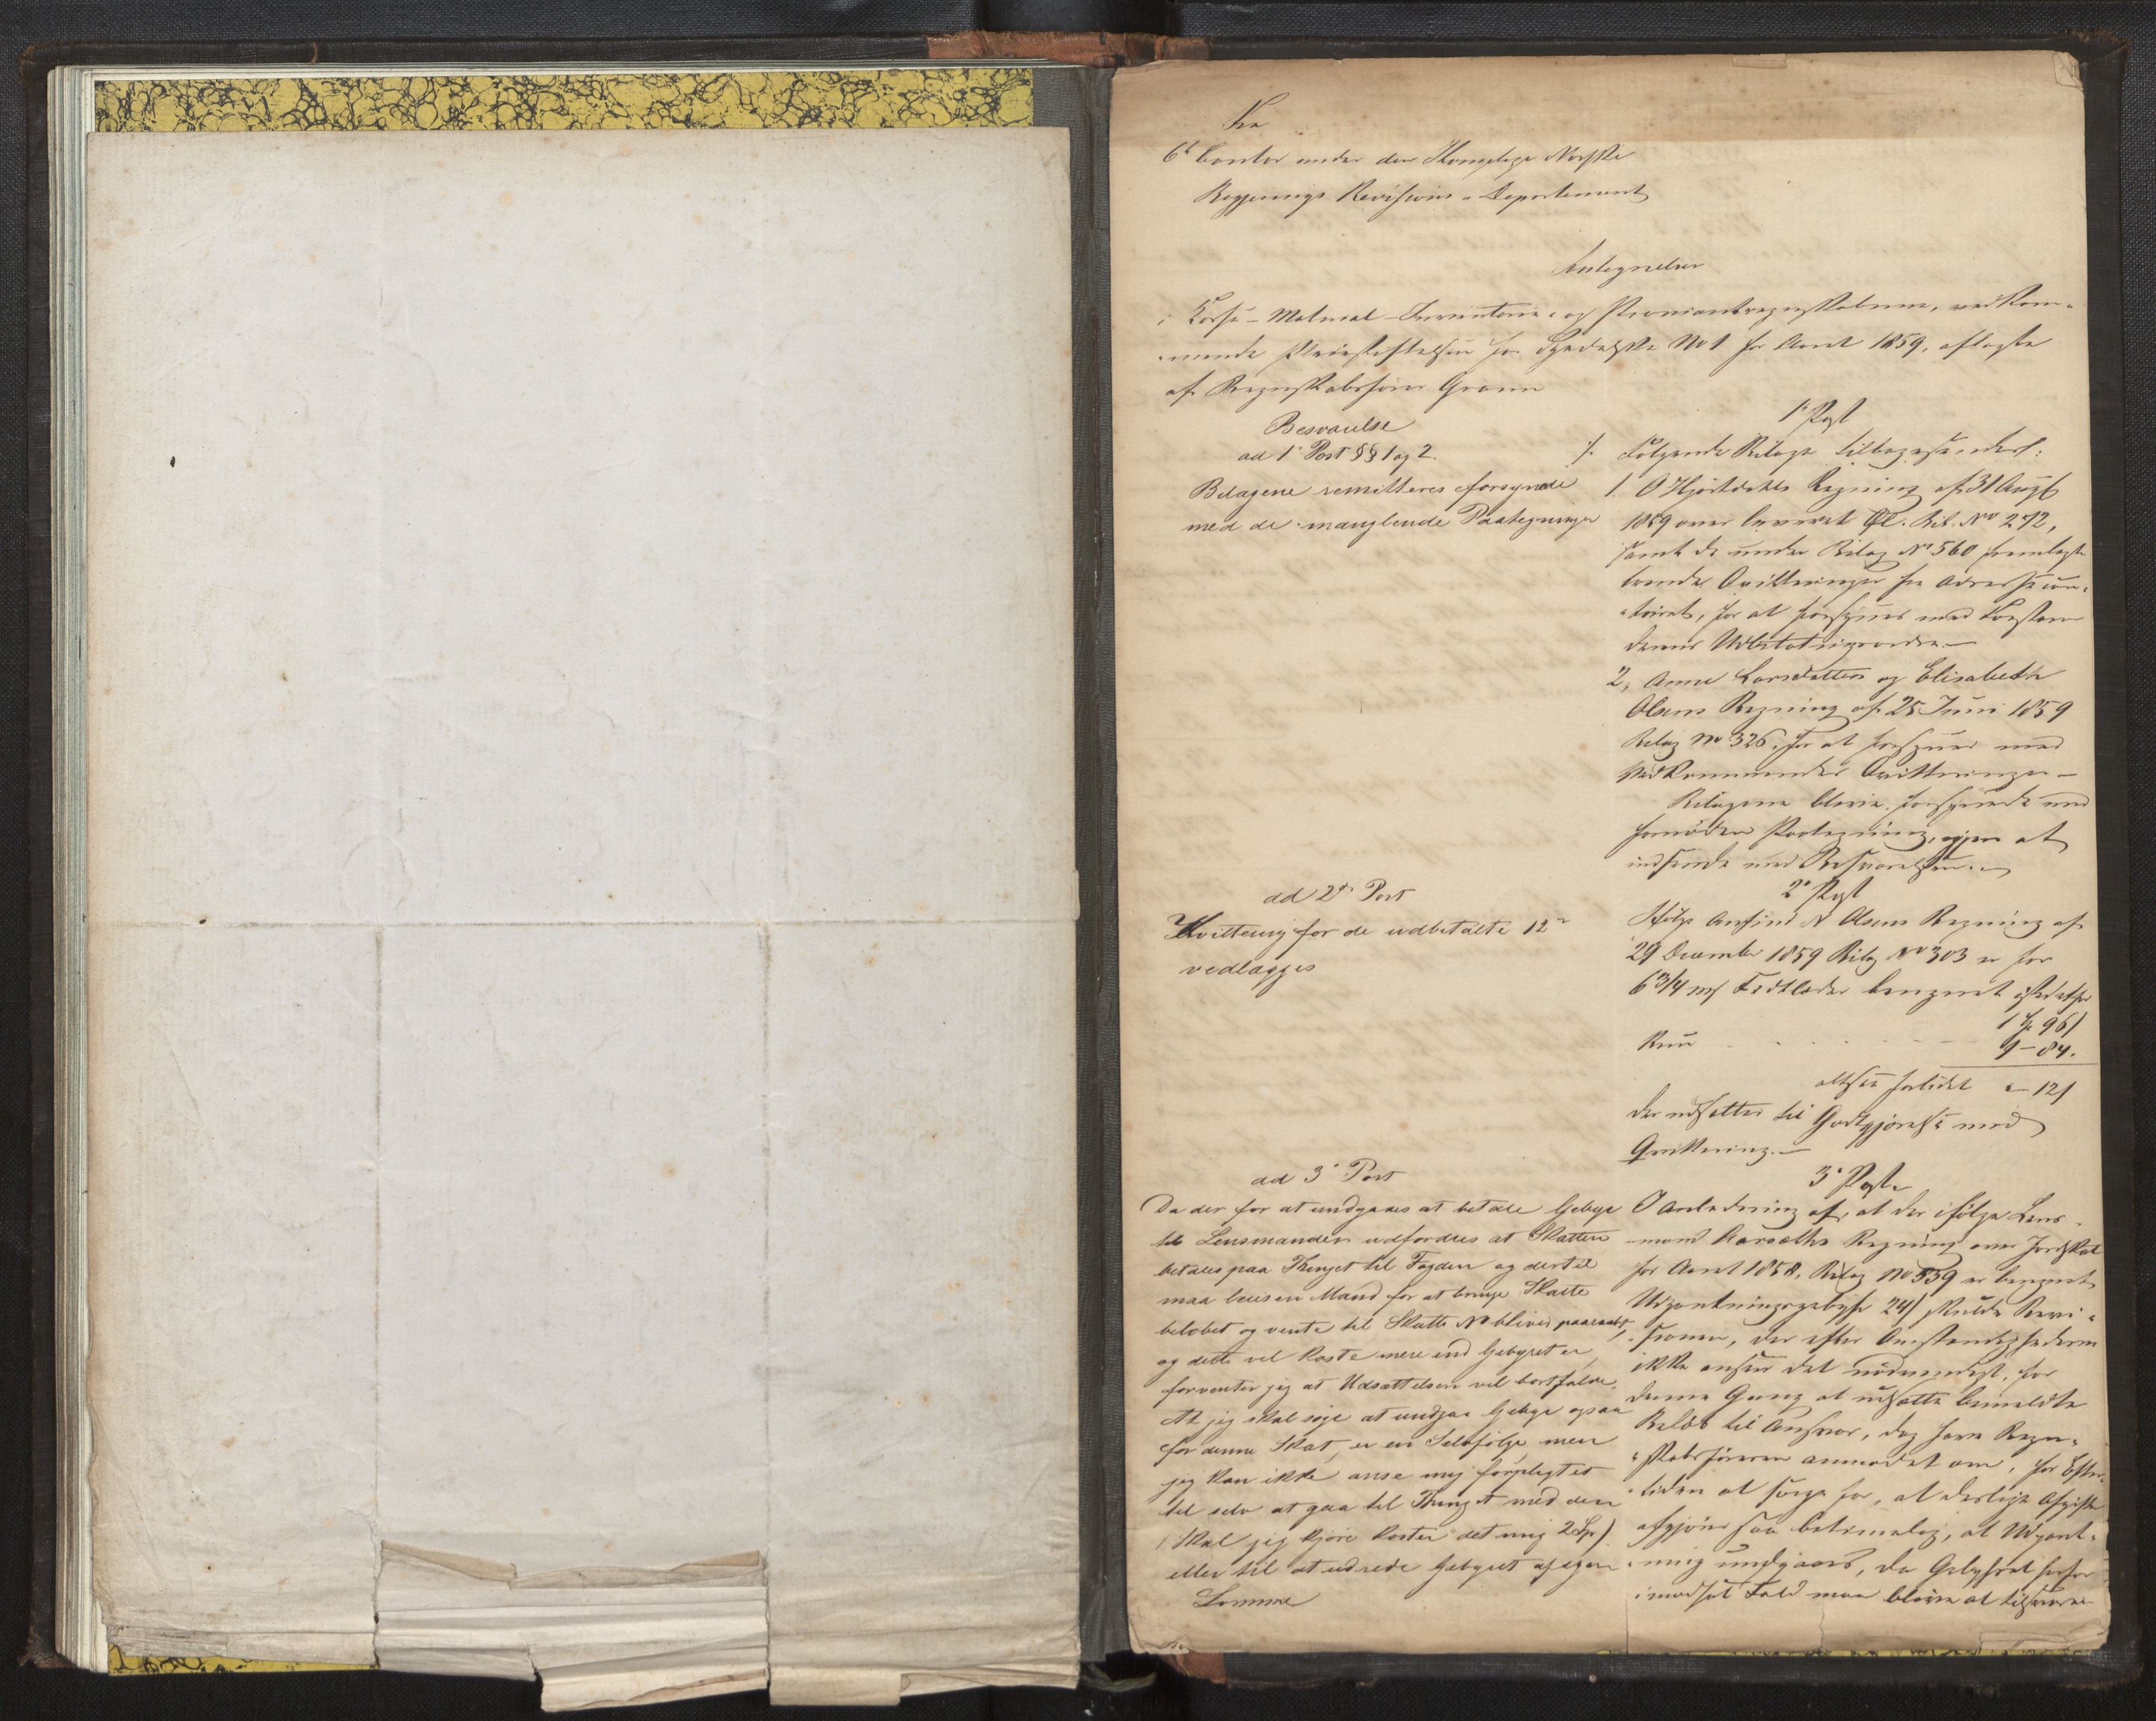 Fra
6te Contor under den Kongelige Norske
Regjerings Revisions-Departement
Antegnelser
i Kasse-Material-Inventarie- og Proviantregnskaberne, vedkom-
mende Pleiestiftelsen for Spedalske No 1 for Aaret 1859, aflagte
af Regnskabsfører Grann
Besvarelse
ad 1' Post §§ 1 og 2.
Bilagene remitteres forsynede
med de manglende Paategninger
ad 2d Post
Kvittering for de udbetalte 12 s
vedlægges
ad 3' Post
Da der for at undgaaes at betale Gebyr
til Lensmanden udfordres at Skatten
betales paa Thinget til Fogden og dertil
maa leies en Mand for at bringe Skatte
beløbet og vente til Skatte No bliver paaraabt,
og dette vel koste mere end Gebyret er,
forventer jeg at Udsættelsen vil bortfalde.
At jeg skal søge at undgaa Gebyr ogsaa
for denne Skat, er en Selvfølge, men
jeg kan ikke anse mig forpligtet
til selv at gaa til Thinget med den
(Skal jeg kjøre koster det mig 2 Sp)
eller til at udrede Gebyret af egen
Lomme
1' Post
Følgende Bilage tilbagesendes:
1. O Hjortdahls Regning af 31 Augst
1859 over leveret Øl. Bil. No 272,
samt de under Bilag No 560 fremlagte
tvende Qvitteringer fra Adressecon-
toiret, for at forsynes med Bestyr
derens Udbetalingsordre.—
2, Anne Larsdatters og Elisabeth
Olsens Regning af 25 Juni 1859
Bilag No 326, for at forsynes med
Vedkommendes Qvitteringer —
Bilagene blive, forsynede med
fornøden Paategning, igjen at
indsende med Besvarelsen.
2' Post
Ifølge Anfind N Olsens Regning af
29 December 1859 Bilag No 303 er for
6 3/4 Fedtlæder beregnet istedetfor
1 96
Kun 1 - 84.
altsaa forlidet " - 12
der udsættes til Godtgjørelse mod
Qvittering.—
3' Post
I Anledning af, at der ifølge Lens-
mand Regning over Jordskat
for Aaret 1858, Bilag No 539 er beregnet
Udpantningsgebyr 24 skulde Revi-
sionen, der efter Omstændighederne
ikke anseer det nødvendigt, for
denne Gang at udsætte bemeldte
Beløb til Ansvar, dog have Regn-
skabsføreren anmodet om, for Efter-
tiden at sørge for, at deslige Afgifter
afgjøres saa betimelig, at Udpant-
ning undgaaes, da Gebyret herfor
i modsat Fald maa blive at tilsvare